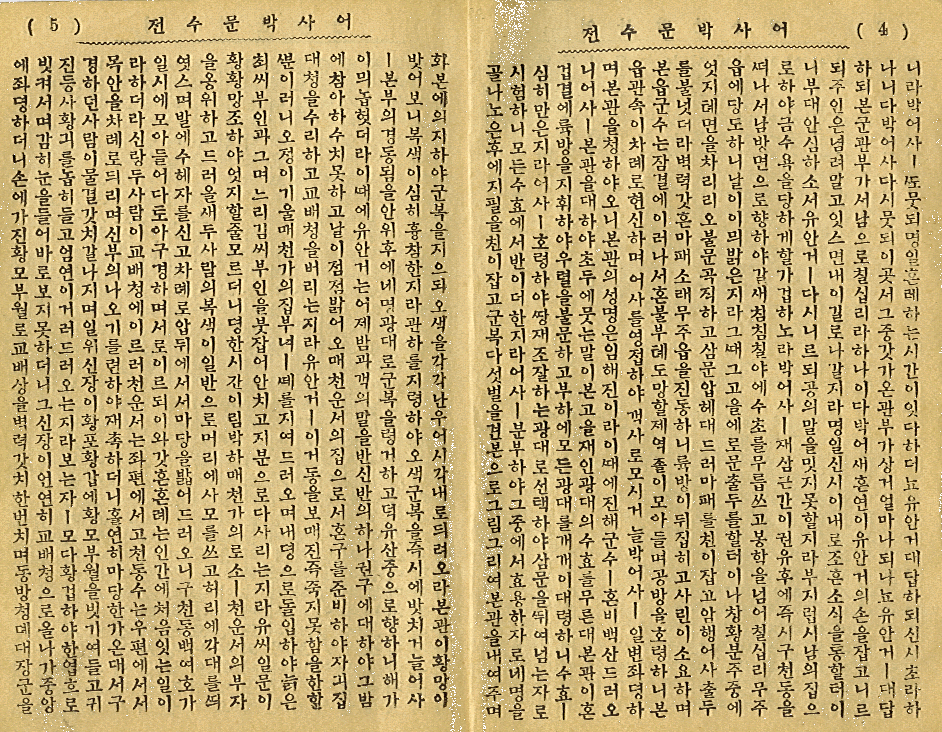 (4) 어사박문수전
니라박어사ㅣ또뭇되명일혼례하는시간이잇다하더뇨유안거대답하되신시초라하
나니다박어사다시뭇되이곳서그중갓가온관부가상거얼마나되나뇨유안거ㅣ대답
하되본군관부가서남으로칠십리라하나이다박어새흔연이유안거의손을잡고니르
되주인은념려말고잇스면내이길로나갈지라명일신시이내로조흔소식을통할터이
니부대안심하소서유안거ㅣ다시니르되공의말을밋지못할지라부지럽시남의집으
로하야금수욕을당하게할가겁하노라박어사ㅣ재삼근간이권유후에즉시구천동을
떠나서남방면으로향하야갈새첨침칠야에수초를무릅쓰고봉학을넘어칠십리무주
읍에당도하니날이이믜밝은지라그때그고을에로문출두를할터이나창황분주중에
엇지톄면을차리리오불문곡직하고삼문압헤대드러마패를천이잡고암행어사출두
를불넛더라벽력갓흔마패소래무주읍을진동하니륙방이뒤집히고사린이소요하며
본읍군수는잠결에이러나서혼불부톄도망할제역졸이모아들며공방을호령하니본
읍관속이차례로현신하며어사를영접하야객사로모시거늘박어사ㅣ일변좌뎡하
며본관을청하야드러오니본관의성명은임해진이라이때에진해군수ㅣ드러오
니어사ㅣ본관을대하야초두에뭇는말이본고을재인광대의수효를무른대본관이혼
겁결에륙방을지휘하야우렬을불문하고부하에모든광대를개개이대령하니수효ㅣ
심히만은지라어사ㅣ호령하야쌍재조잘하는광대로선택하야삼문을뒤여넘는자로
시험하니모든수효에서반이더한지라어사ㅣ분부하야그중에서효용한자로네명을
골나노은후에지필을친이잡고군복다섯벌을견본으로그림그리여본관을내여주며
어사박문수전 (5)
화본에의지하야군복을지으되오색을각각난우어시각내로듸려오라본관이황망이
밧어보니복색이심히흉참한지라관하를지령하야오색군복을즉시에밧치거늘어사
ㅣ본부의경동됨을안위후에네명광대로군복을령거하고뎍유산중으로향하니해가
이믜놉헛더라이때에유안거는어제밤과객의말을반신반의하나권구에대하야그밤
에참아하수치못하고날이점점밝어오매천운서의집으로서혼구를준비하야자긔집
대청을수리하고교배청을버리는지라유안거ㅣ이거동을보매진즉죽지못함을한할
뿐이러니오정이기울매천가의집부녀ㅣ떼를지여드러오며내뎡으로돌입하야늙은
최씨부인과그며느리김씨부인을붓잡어안치고지분으로다사리는지라유씨일문이
황황망조하야엇지할줄모르더니뎡한시간이림박하매천가의로소ㅣ천운서의부자
을옹위하고드러올새두사람의복색이일반으로머리에사모를쓰고허리에각대를띄
엿스며발에수혜자를신고차례로압뒤에서서마당을밟어드러오니구천동백여호가
일시에모아들어다토아구경하며서로이르되이와갓흔혼례는인간에처음잇는일이
라하더라신랑두사람이교배청에이르러천운서는좌편에서고천동수는우편에서서
목안을차례로듸리며신부의나오기를하야재촉하더니홀연히마당한가온대서구
경하던사람이물결갓치갈나지며일위신장이황포황갑에황모부월을빗기여들고귀
진등사황긔를놉히들고엄연이거러드러오는지라보는자ㅣ모다황겁하야한엽흐로
빗켜서며감히눈을들어바로보지못하더니그신장이언연히교배청으로올나가중앙
에좌뎡하더니손에가진황모부월로교배상을벽력갓치한번치며동방청뎨대장군을